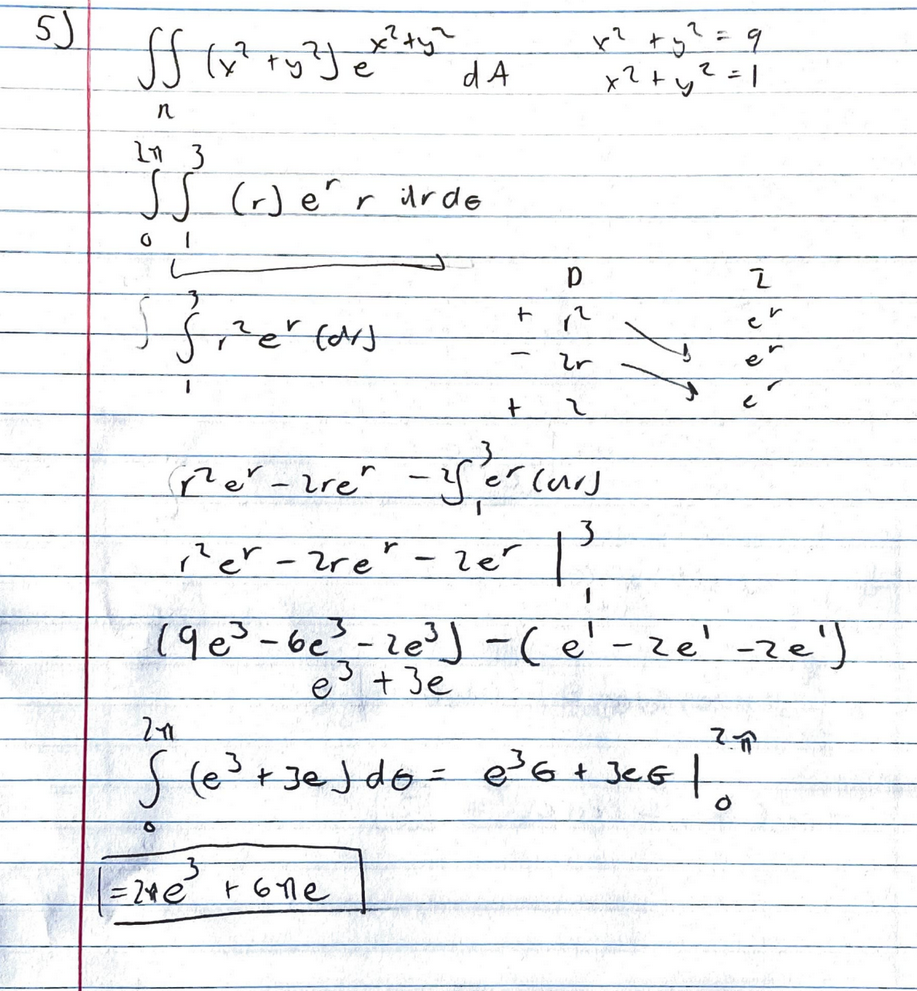 5) ∬ (x² + y²) e^(x²+y²) dA x² + y² = 9
R x² + y² = 1
∫₀^2π ∫₁³ (r) e^r r dr dθ
D I
∫ ∫₁³ r² e^r (dr) + r² e^r
- 2r e^r
+ 2 e^r
r² e^r - 2re^r - 2∫₁³ e^r (dr)
r² e^r - 2re^r - 2e^r |₁³
(9e³ - 6e³ - 2e³) - (e¹ - 2e¹ - 2e¹)
e³ + 3e
∫₀^2π (e³ + 3e) dθ = e³θ + 3eθ |₀^2π
= 2πe³ + 6πe